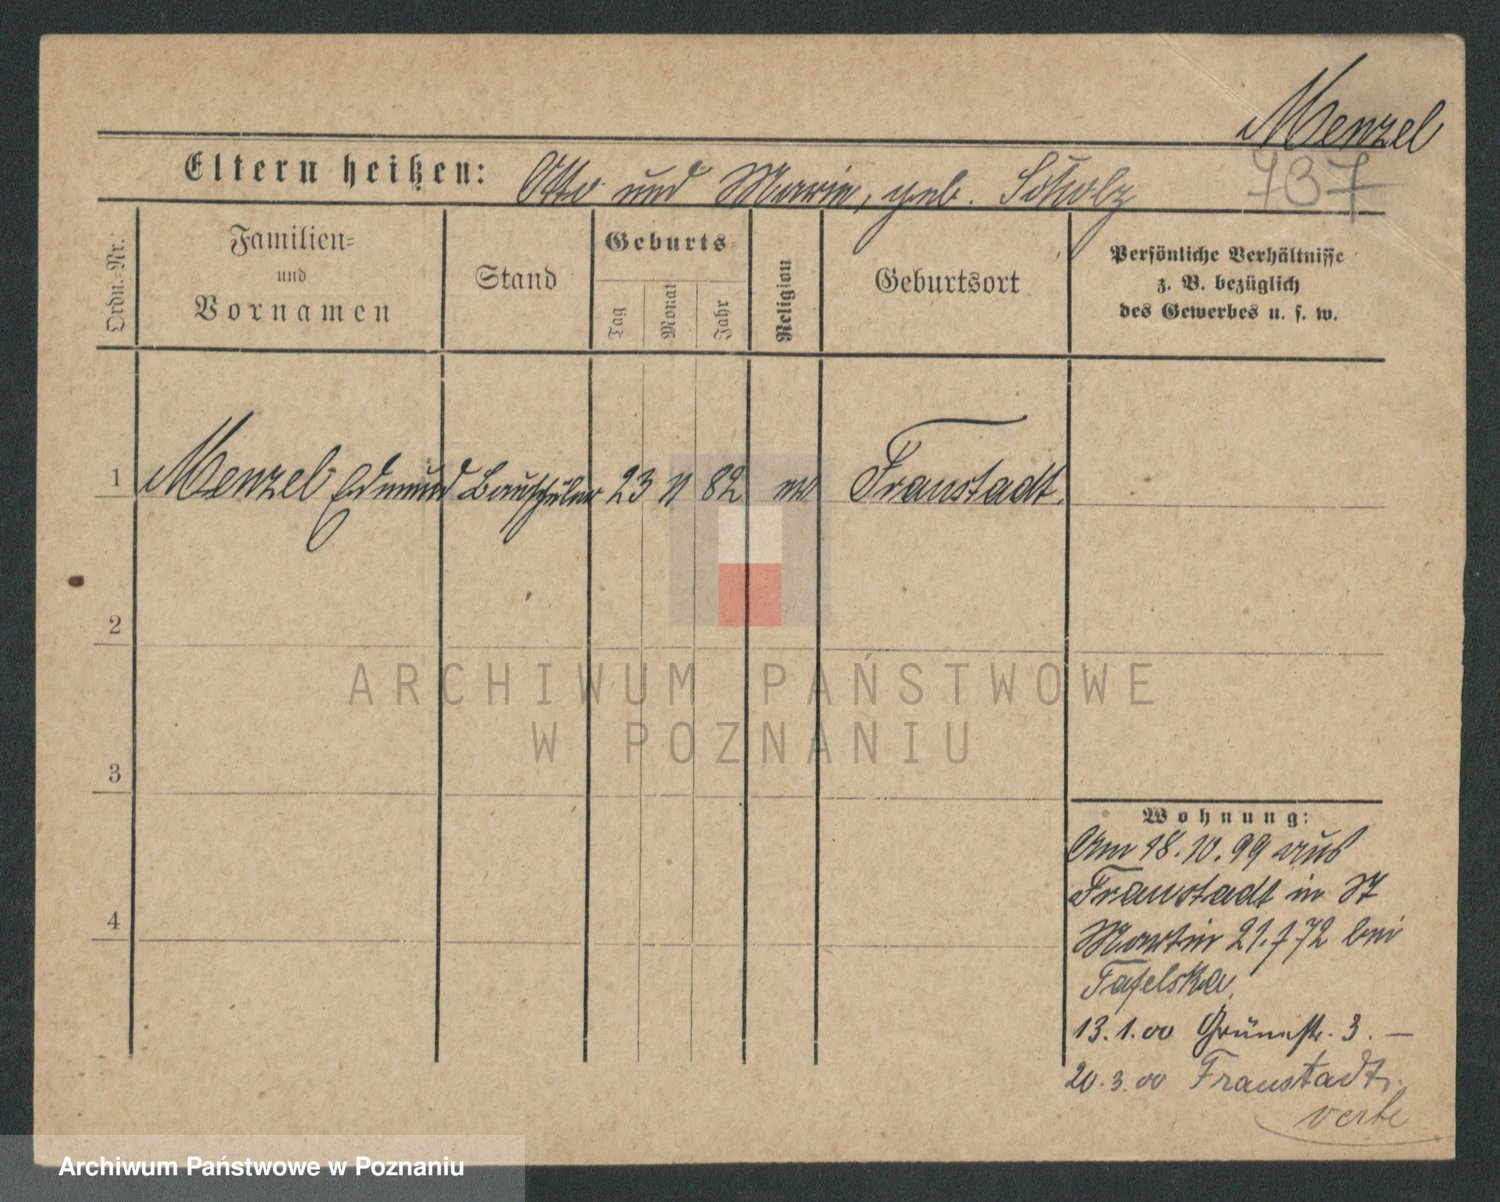 Menzel
737
Eltern heißen: Otto und Marie, geb. Scholz
Ordn.-Nr.
Familien-
und
Vornamen
Stand
Geburts-
Tag
Monat
Jahr
Religion
Geburtsort
Persönliche Verhältnisse
z. B. bezüglich
des Gewerbes u. s. w.
1 Menzel Edmund Bauschüler 23 11 82 ev Fraustadt
2
3
4
Wohnung:
Am 18.10.99 aus
Fraustadt in St
Martin 21. 72 bei
Tafelska,
13.1.00 Grünestr. 3. —
20.3.00 Fraustadt
verte
ARCHIWUM PAŃSTWOWE
W POZNANIU
Archiwum Państwowe w Poznaniu